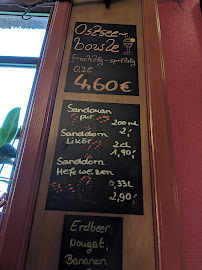 Ostsee-
bowle
fruchtig-spritzig
0,2l
4,60€
Sanddorn
pur 200ml
2,-
Sanddorn
Likör 2cl
1,90,-
Sanddorn
Hefeweizen
0,33l
2,90,-
Erdbeer
Nougat,
Bananen